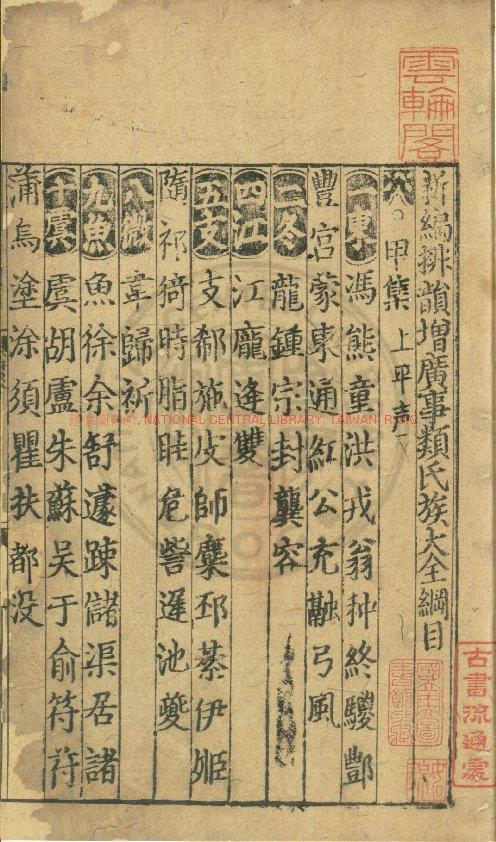 新編排韻增廣事類氏族大全綱目
甲集 上平聲
一東 馮熊童洪戎翁种終騣酆
豐宮蒙東通紅公充融弓風
二冬 龍鍾宗封龔容
四江 江龐逄雙
五支 支郗施皮師麋邳綦伊姬
隋祁猗時脂眭危訾遲池夔
八微 韋歸祈
九魚 魚徐余舒遽疎儲渠居諸
十虞 虞胡盧朱蘇吴于俞符苻
蒲烏塗涂須瞿扶都没
雲輪閣
古書流通處
NATIONAL CENTRAL LIBRARY, TAIWAN, R.O.C